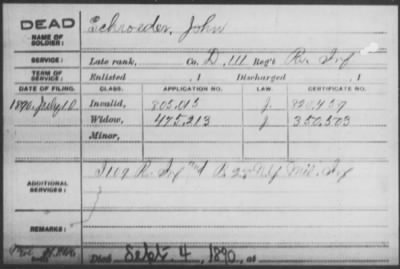 DEAD
NAME OF SOLDIER: Schroeder, John
SERVICE: Late rank, Co. D, 111 Reg't R. Inf
TERM OF SERVICE: Enlisted , 1 Discharged , 1
DATE OF FILING. CLASS. APPLICATION NO. LAW. CERTIFICATE NO.
1890, July 10 Invalid, 802,415 J 820,459
Widow, 475,213 J 350,503
Minor,
ADDITIONAL SERVICES: R. Inf and Mil. Inf
REMARKS:
Died Sept. 4, 1890, at